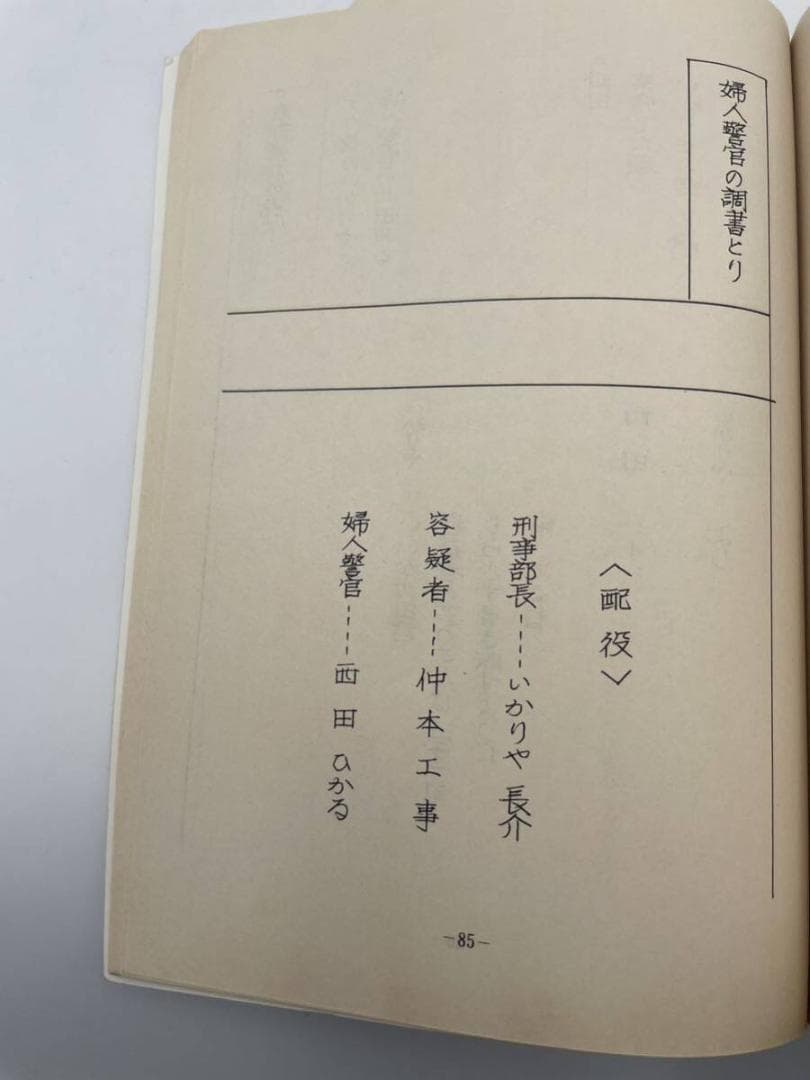 婦人警官の調書とり
〈配役〉
刑事部長----いかりや長介
容疑者----仲本工事
婦人警官----西田ひかる
-85-